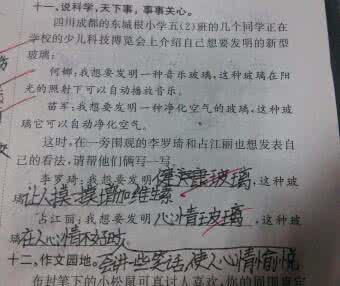 十一、说科学,天下事,事事关心。
四川成都的东城根小学五(2)班的几个同学正在
学校的少儿科技博览会上介绍自己想要发明的新型
玻璃:
何娜:我想要发明一种音乐玻璃,这种玻璃在阳
光的照射下可以自动播放音乐。
苗军:我想要发明一种净化空气的玻璃,这种玻
璃它可以自动净化空气。
这时,在一旁围观的李罗琦和占江丽也想发表自
己的看法,请帮他们俩写一写。
李罗琦:我想要发明健康玻璃,这种玻
璃让人摸一摸增加维生素。
占江丽:我想要发明心情玻璃,这种玻
璃在人心情不好时,
会讲一些笑话,使人心情愉悦
十二、作文园地。
在封笔下的小松鼠可真讨人喜欢,你的周围肯定